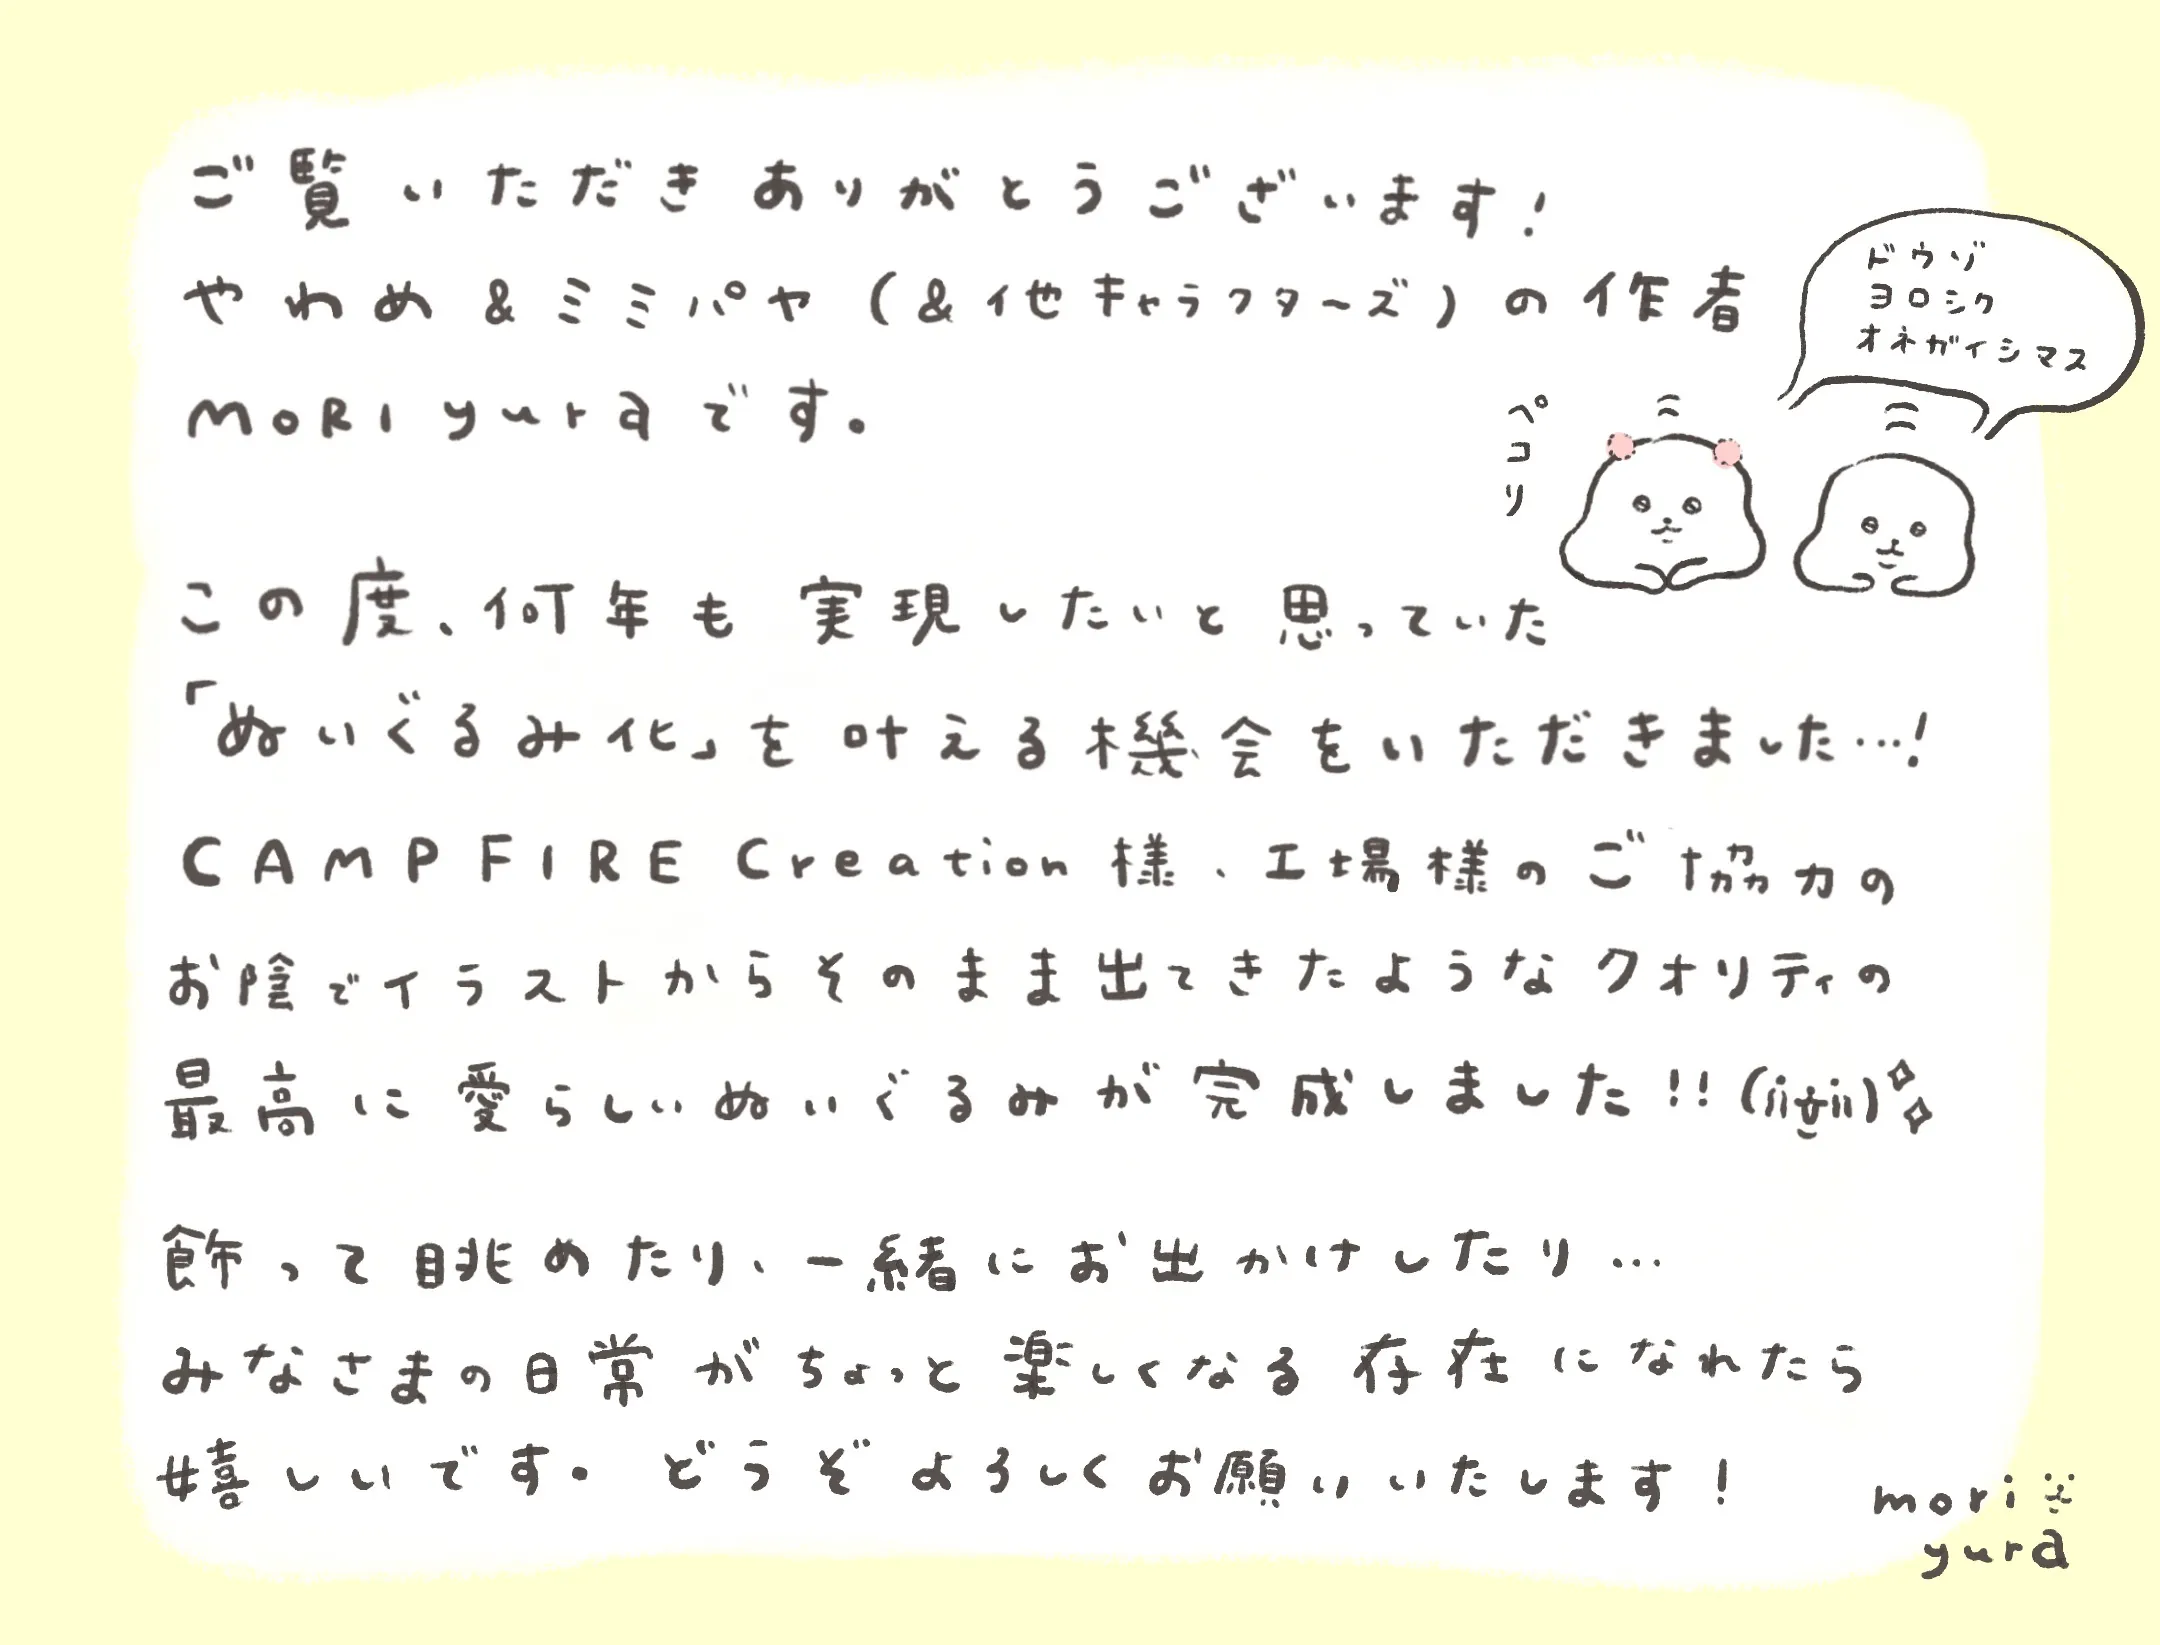 ご覧いただきありがとうございます!
やわめ&ミミパヤ(&他キャラクターズ)の作者
MoRI yuraです。
ドウゾ
ヨロシク
オネガイシマス
ペコリ
この度、何年も実現したいと思っていた
「ぬいぐるみ化」を叶える機会をいただきました…!
CAMPFIRE Creation様、工場様のご協力の
お陰でイラストからそのまま出てきたようなクオリティの
最高に愛らしいぬいぐるみが完成しました!!
飾って眺めたり、一緒にお出かけしたり…
みなさまの日常がちょっと楽しくなる存在になれたら
嬉しいです。どうぞよろしくお願いいたします!
mori
yura